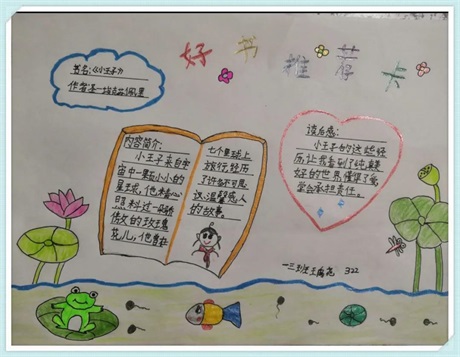 好书推荐卡
书名:《小王子》
内容简介:
小王子来自宇
宙中一颗小小的
星球,他精心
照料过一朵骄
傲的玫瑰
花儿,他曾在
七个星球上
旅行,经历
了许多不可思
议,温馨感人
的故事。
读后感:
小王子的这些经
历,让我看到了纯真美
好的世界,懂得了爱,
学会承担责任。
322